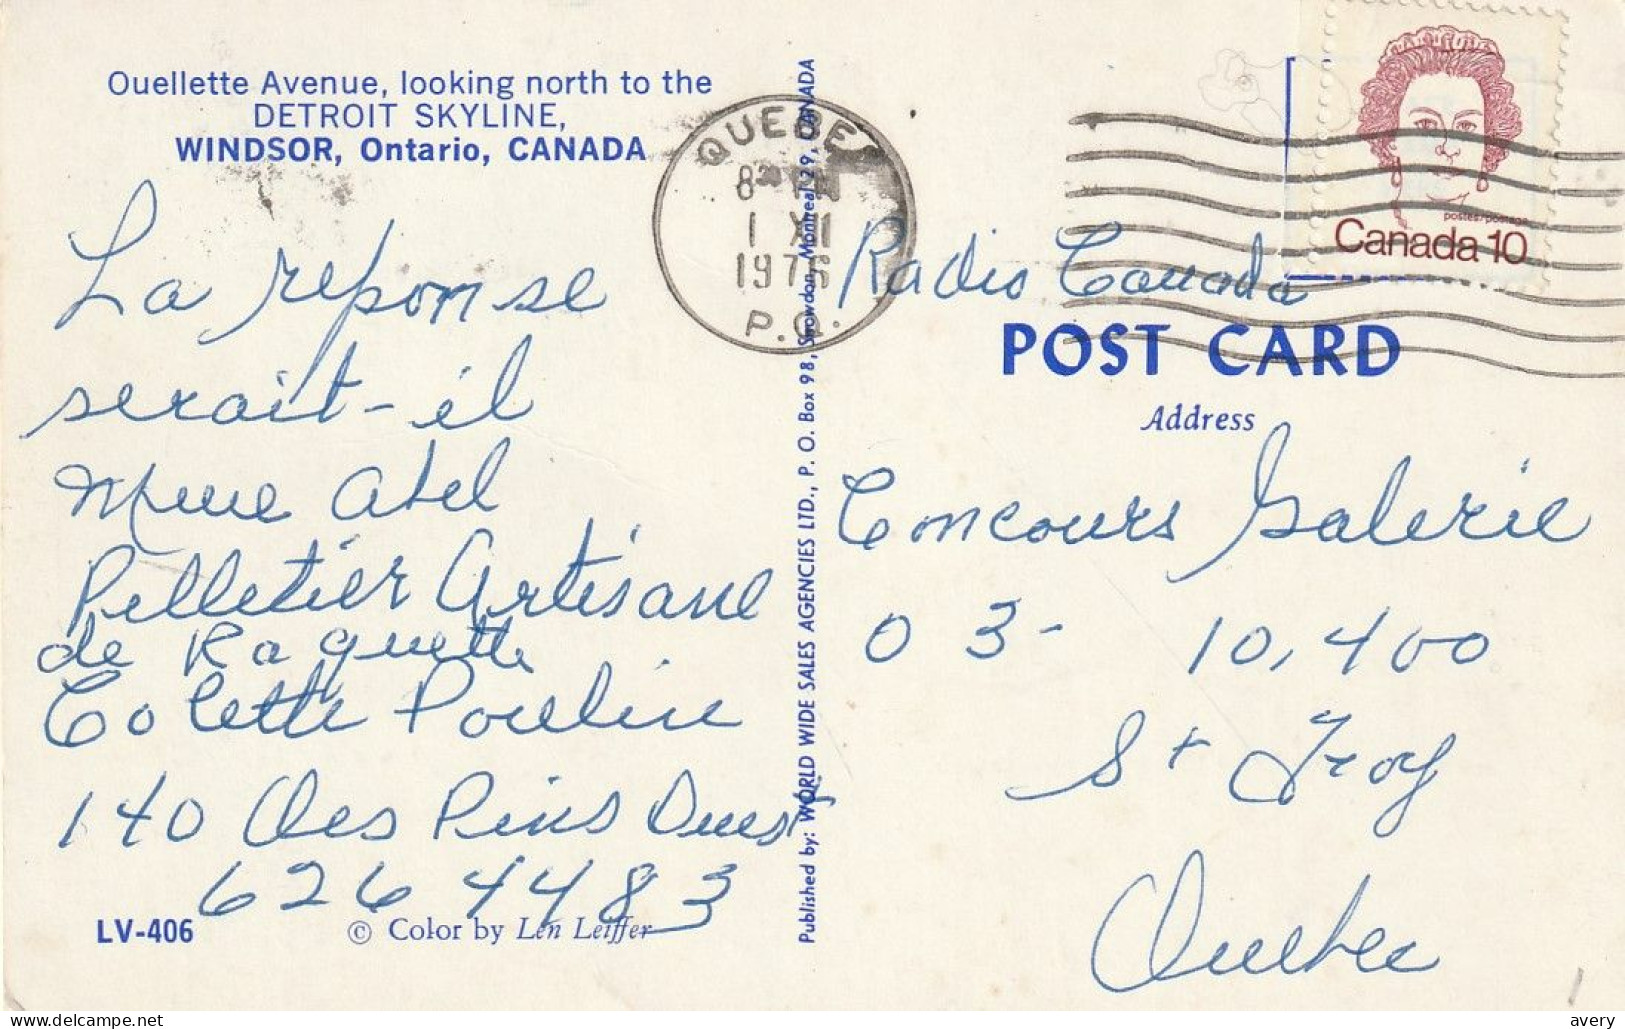 Ouellette Avenue, looking north to the
DETROIT SKYLINE,
WINDSOR, Ontario, CANADA
La reponse
serait-il
Mme Abel
Pelletier Artisane
de Raquette
Colette Poulin
140 Des Pins Ouest
626 4483
LV-406
© Color by Len Leiffer
Published by: WORLD WIDE SALES AGENCIES LTD., P. O. Box 98, Snowdon, Montreal 29, CANADA
QUEBE
8 30 PM
1 XII
1976
P.Q.
postes/postage
Canada 10
Radio Canada
POST CARD
Address
Concours Galerie
03- 10,400
St Froy
Quebec
avery
delcampe.net